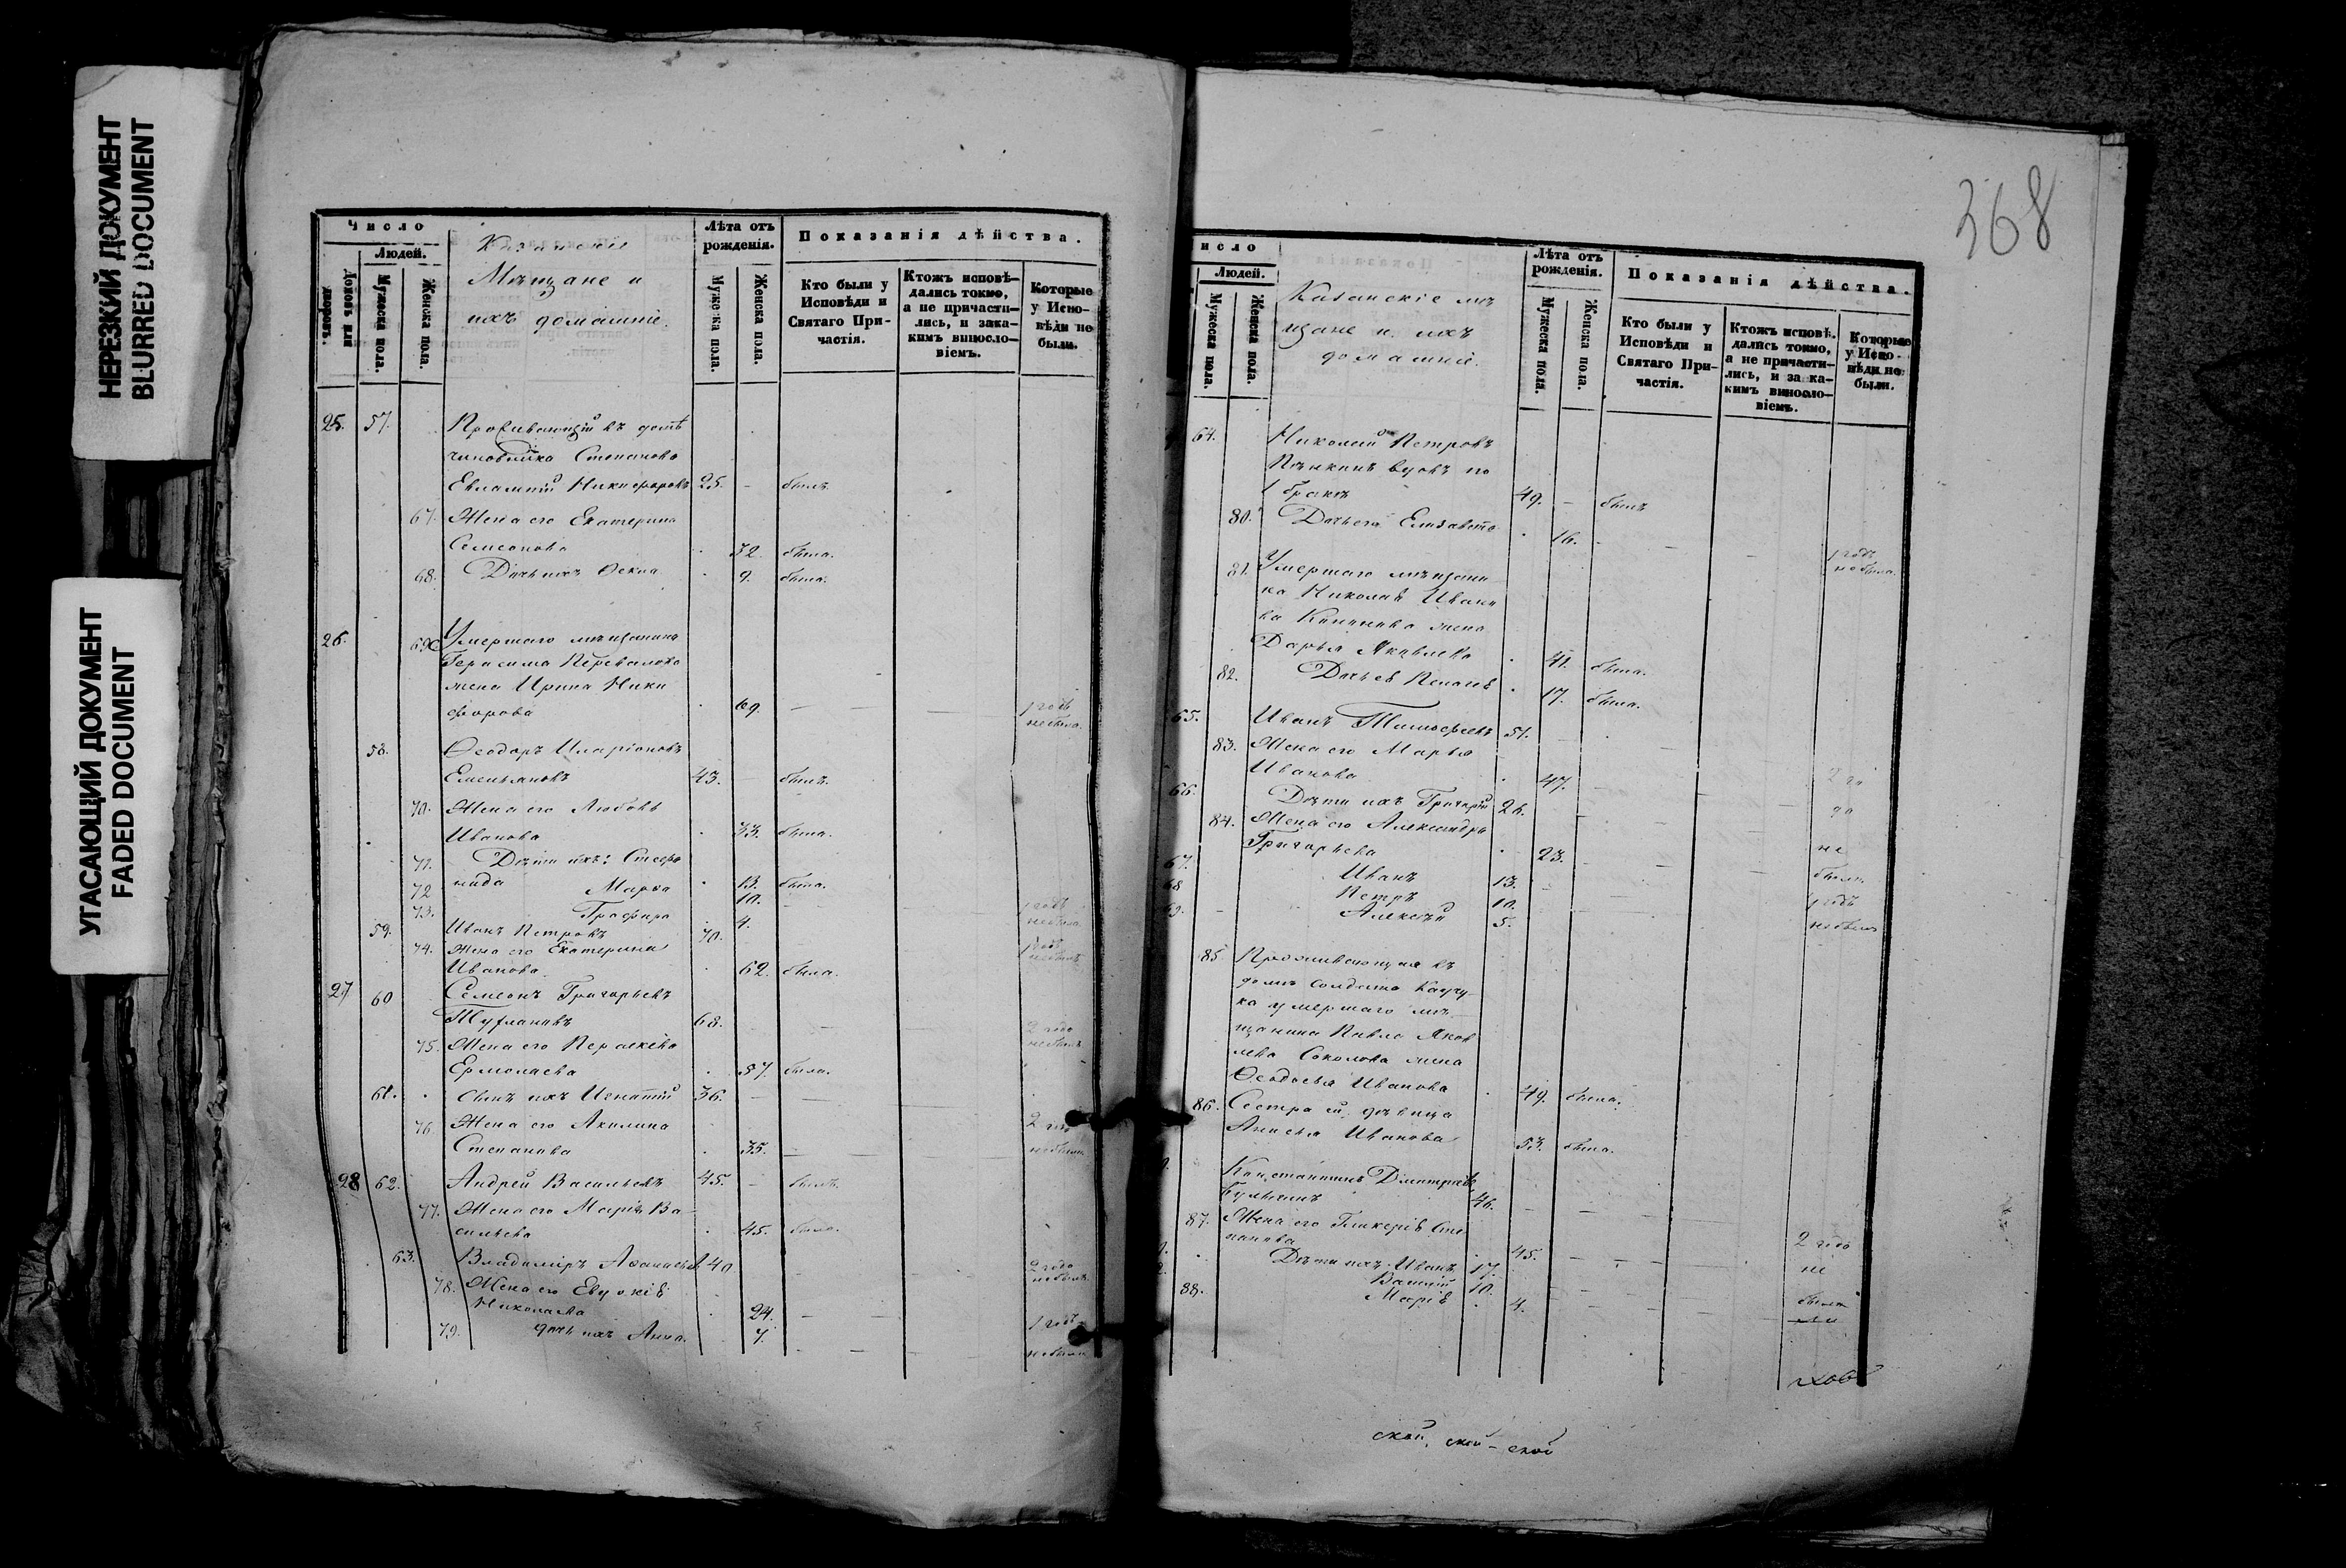 НЕРЕЗКИЙ ДОКУМЕНТ
BLURRED DOCUMENT
УГАСАЮЩИЙ ДОКУМЕНТ
FADED DOCUMENT
Число
Людей.
Домовъ или дворовъ.
Мужеска пола.
Женска пола.
Казанскіе
Мѣщане и
ихъ домашніе.
Лѣта отъ рожденія.
Мужеска пола.
Женска пола.
Показанія дѣйства.
Кто были у Исповѣди и Святаго Причастія.
Ктожъ исповѣдались токмо, а не причастились, и за каким винословіемъ.
Которые у Исповѣди не были.
25. 57. Проживающій въ домѣ
чиновника Степанова
Евлампій Никифоровъ 25. — былъ.
67. Жена его Екатерина
Семеонова 32. была.
68. Дочь ихъ Ѳекла 9. была.
26. 69 Умершаго мѣщанина
Герасима Перевалова
жена Ирина Ники
форова 69. — — 1 годъ
не была.
58. Ѳеодоръ Иларіоновъ
Емельяновъ 43. — былъ.
70. Жена его Любовь
Иванова 33. была.
71. Дѣти ихъ: Стефа
нида 13. была.
72 Марѳа 10.
73. Графира 4. 1 годъ
не была
59. Иванъ Петровъ 70. 1 годъ
не былъ
74. Жена его Екатерина
Иванова 62. была.
27 60 Семеонъ Григорьевъ
68. — 2 года
не былъ
75. Жена его Параскева
Ермолаева 57. была.
61. сынъ ихъ Игнатій 36. — —
76 Жена его Акилина 2 года
Степанова 35. — не были
28 62. Андрей Васильевъ 45. — былъ.
77. Жена его Марія Ва
сильева 45. была.
63. Владиміръ Аѳанасьевъ 40 — 2 года
не былъ.
78. Жена его Евдокія
Николаева 24. — — 1 годъ
79. дочь ихъ Анна. 7. — не были
368
исло
Людей.
Мужеска пола.
Женска пола.
Казанскіе мѣ
щане и ихъ
домашніе.
Лѣта отъ рожденія.
Мужеска пола.
Женска пола.
Показанія дѣйства.
Кто были у Исповѣди и Святаго Причастія.
Ктожъ исповѣдались токмо, а не причастились, и за каким винословіемъ.
Которые у Исповѣди не были.
64. Николай Петровъ
вдовъ по
1 бракѣ 49. — былъ
80. Дочь его Елизавета 16. — — 1 годъ
не была.
81. Умершаго мѣщани
на Николая Ивано
ва жена
Дарья Яковлева 41. была.
82. Дочь ея Пелагея 17. была.
65. Иванъ Тимофеевъ 51. —
83. Жена его Марья
Иванова 47. — 2 го
66. Дѣти ихъ Григорій 26. — да
84. Жена его Александра
Григорьева 23. — не
67. Иванъ 13. были.
68 Петръ 10. 1 годъ
69. Алексѣй 5. не были
85 Проживающая въ
домѣ солдата
умершаго мѣ
щанина Павла Яков
лева Соколова жена
Ѳеодосья Иванова 49. была.
86. Сестра ей дѣвица
Анисья Иванова 53. была.
Константинъ Дмитріевъ
46. —
87. Жена его Гликерія Сте
панова 45. — 2 года
Дѣти ихъ Иванъ 17. не
Василій 10. были
88. Марія 4. —
ской, ской - ской